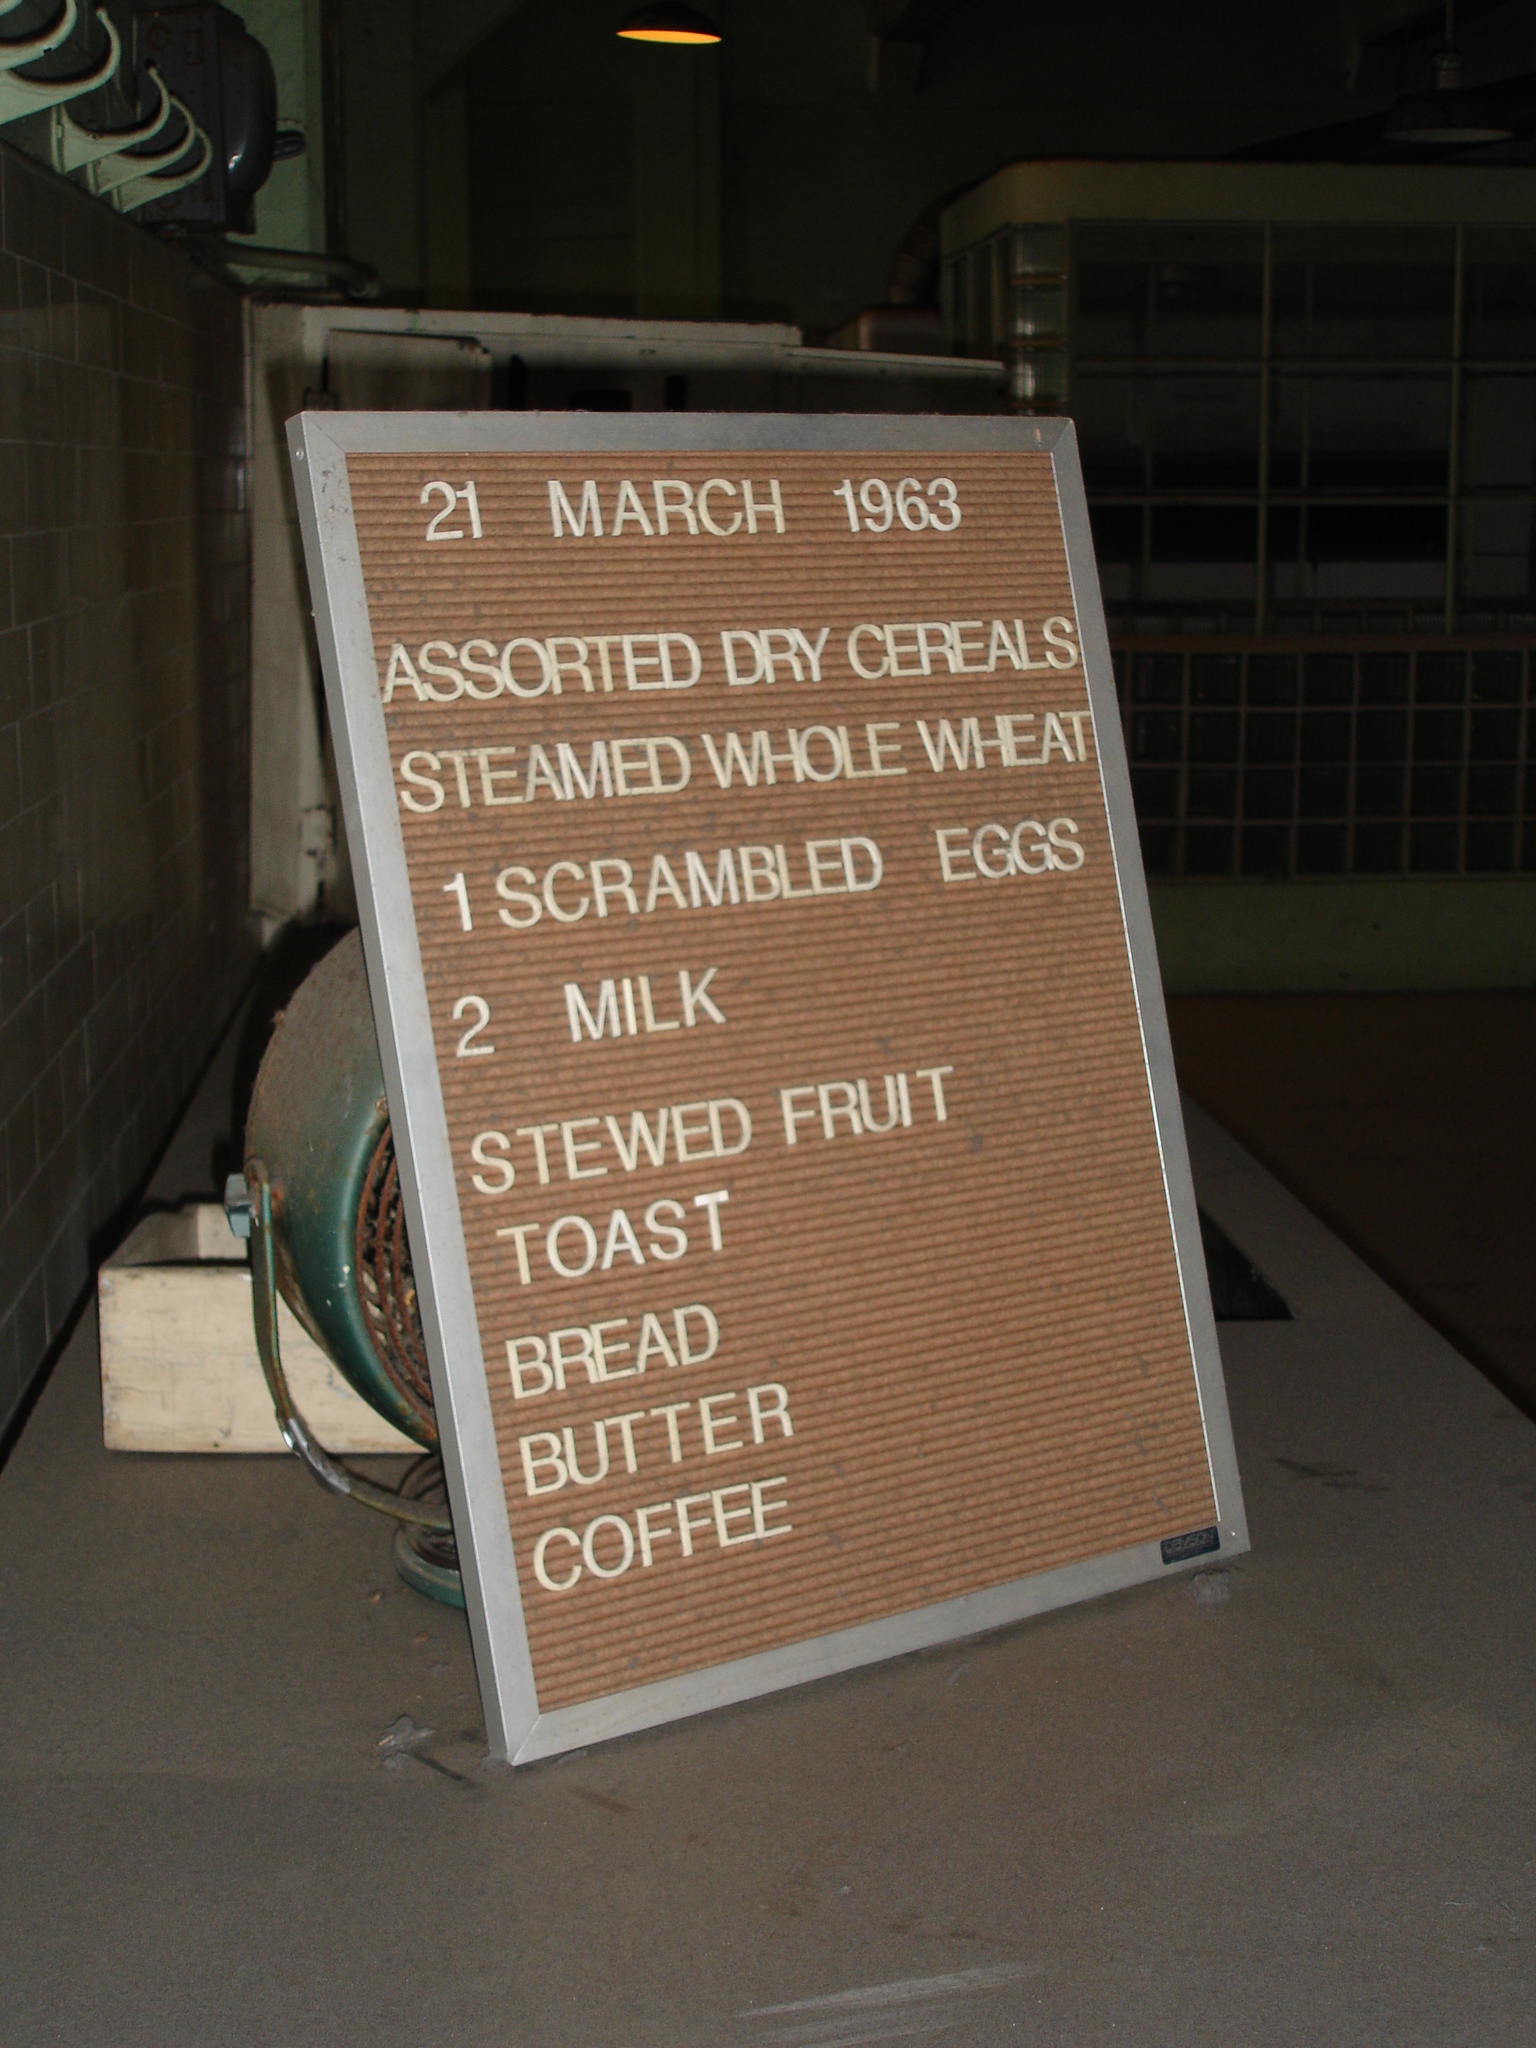 21 MARCH 1963
ASSORTED DRY CEREALS
STEAMED WHOLE WHEAT
1 SCRAMBLED EGGS
2 MILK
STEWED FRUIT
TOAST
BREAD
BUTTER
COFFEE